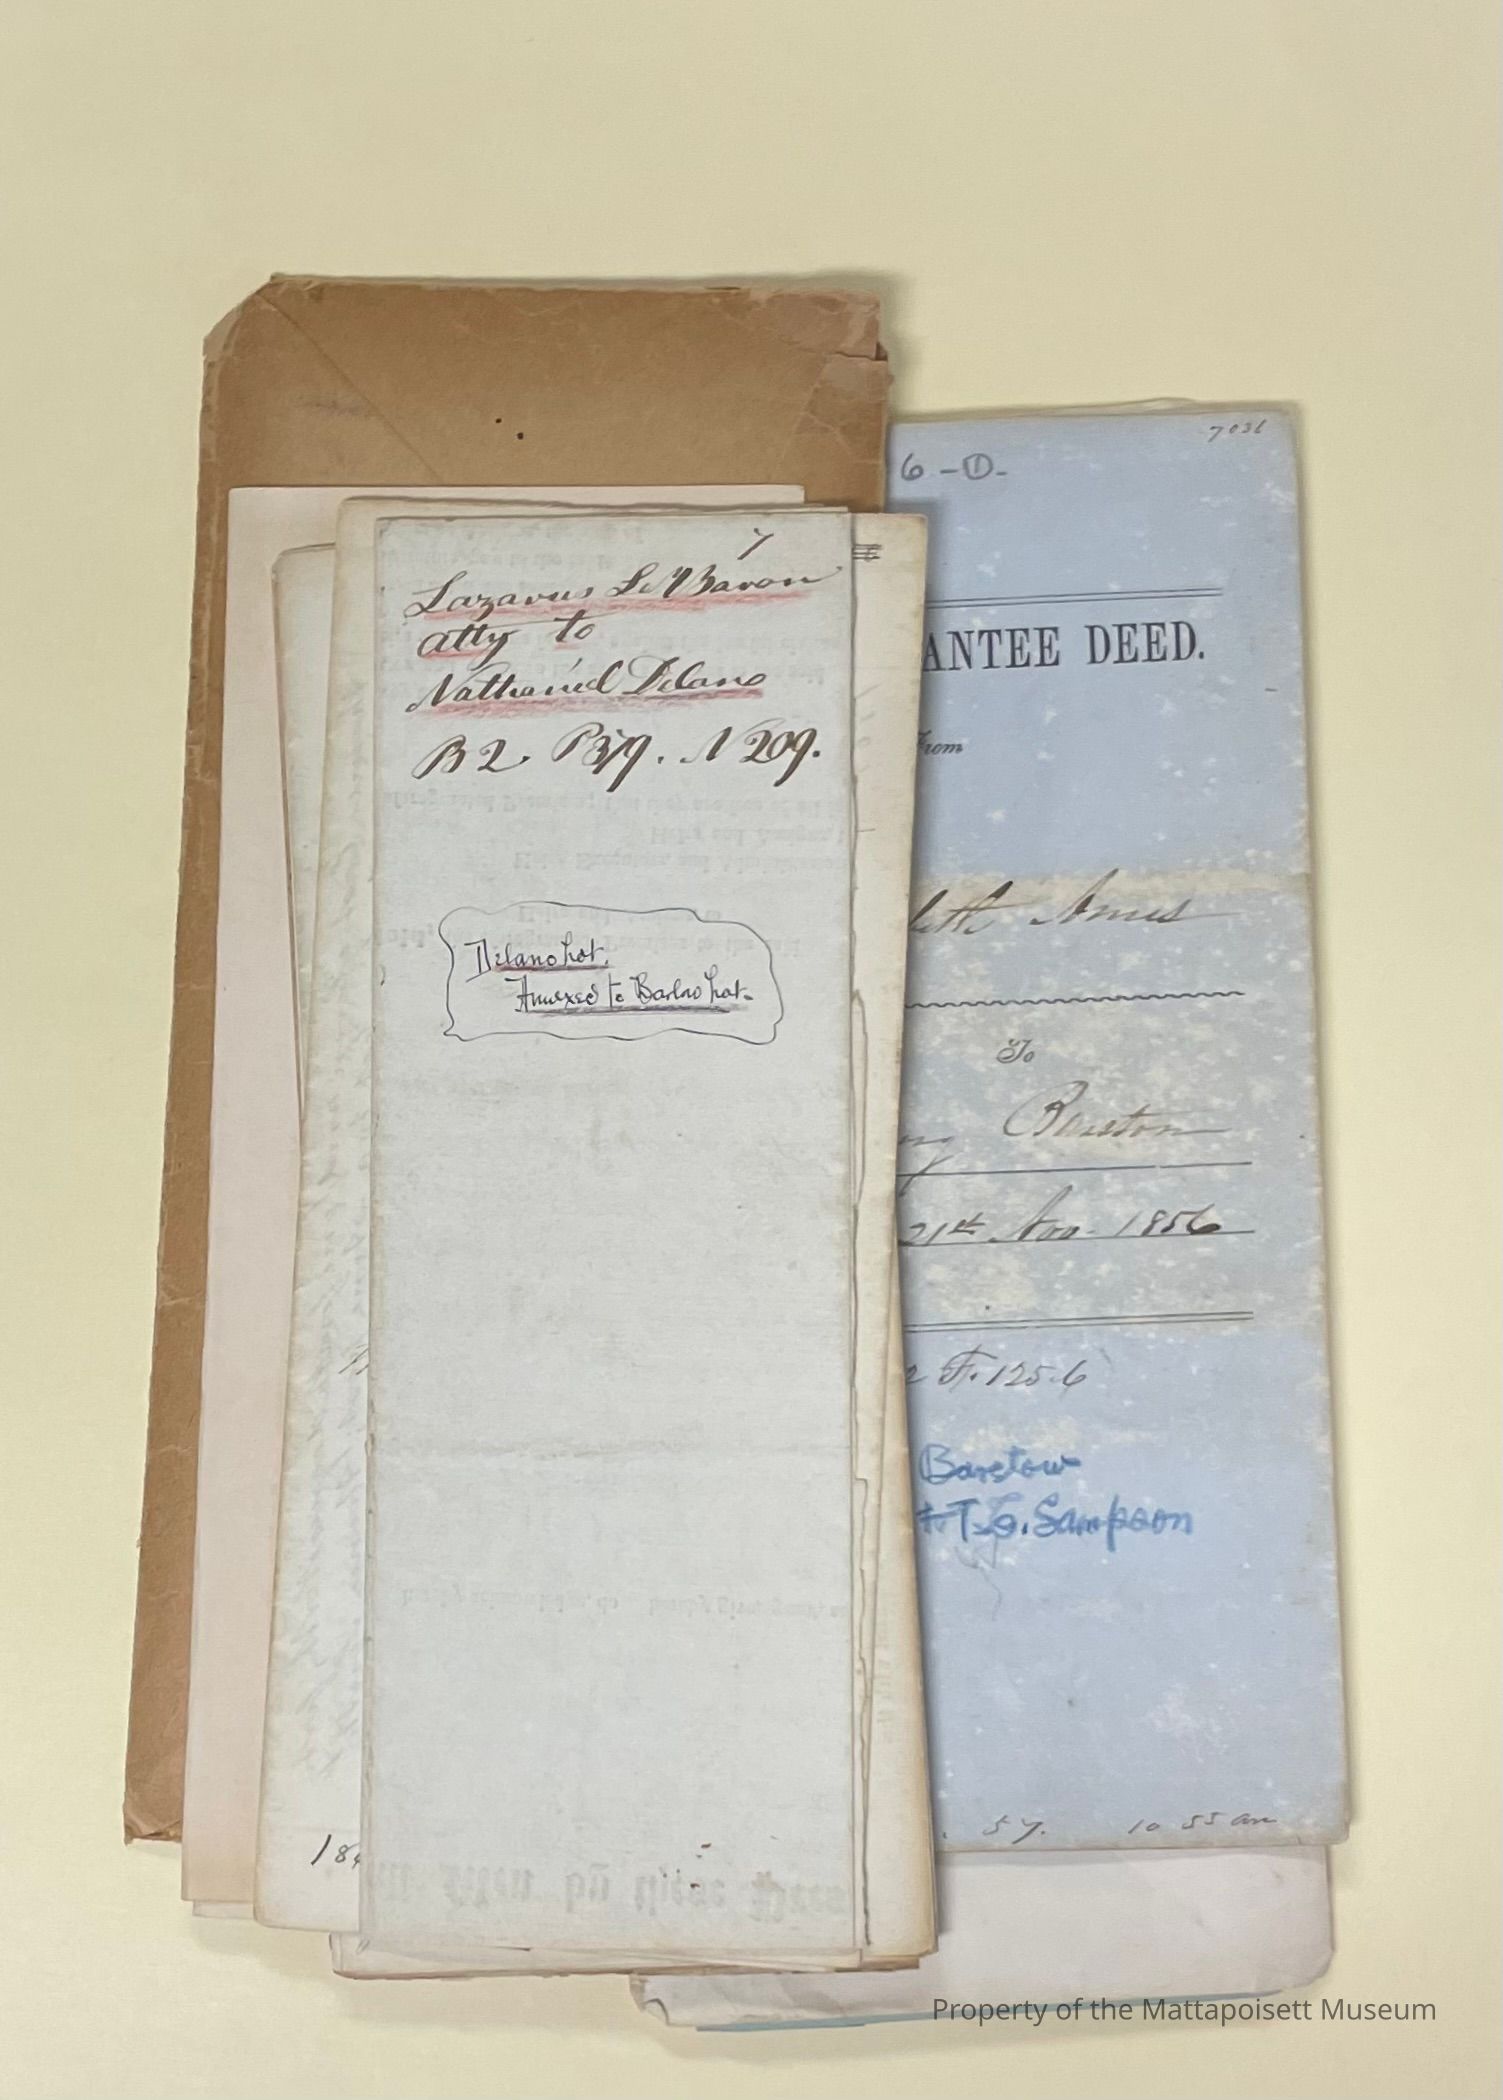 7
Lazarus LeBaron
atty to
Nathaniel Delano
B 2. P379. N 209.
Delano Lot.
Annexed to Barlow Lot.
184
7036
6 -①-
ANTEE DEED.
From
beth Ames
To
Barstow
21st Nov. 1856
2 F. 125.6
Barstow
+ T. G. Sampson
57. 10 55 am
Property of the Mattapoisett Museum